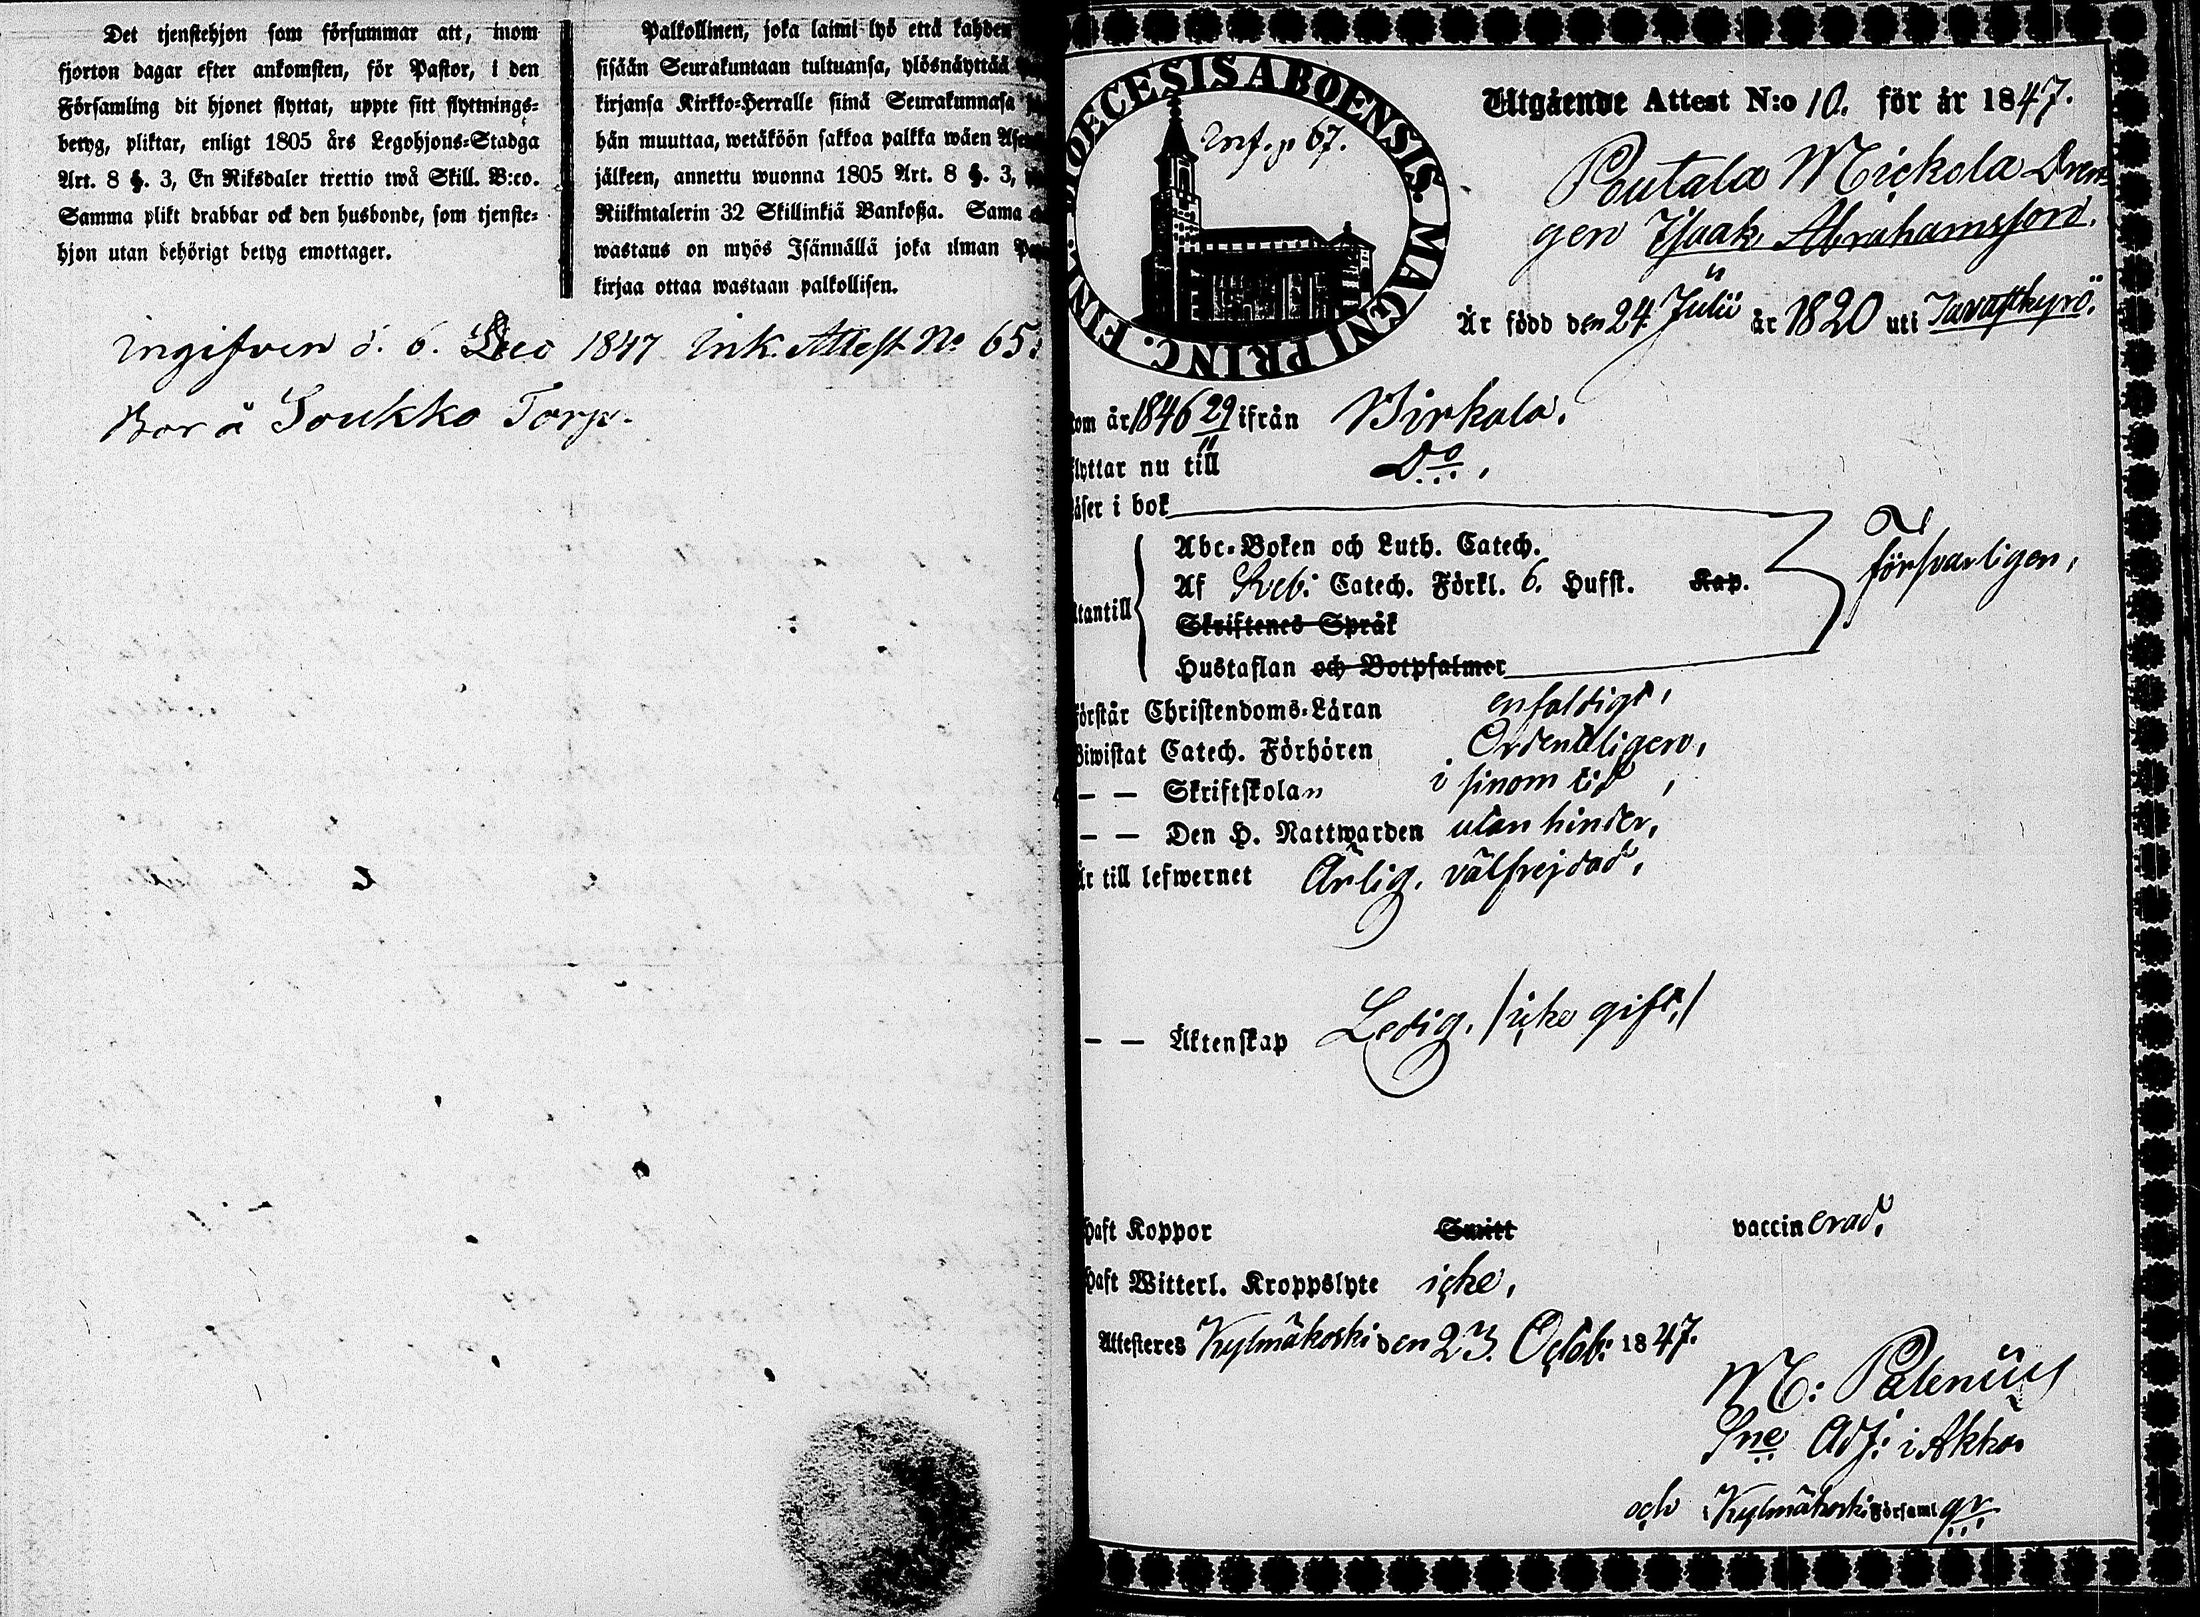 Det tjenstehjon som försummar att, inom
fjorton dagar efter ankomsten, för Pastor, i den
Församling dit hjonet flyttat, uppte sitt flyttnings-
betyg, pliktar, enligt 1805 års Legohjons-Stadga
Art. 8 §. 3, En Riksdaler trettio twå Skill. B:co.
Samma plikt drabbar ock den husbonde, som tjenste-
hjon utan behörigt betyg emottager.
Palkollinen, joka laimi-lyö että kahden
sisään Seurakuntaan tultuansa, ylösnäyttää
kirjansa Kirkko-Herralle siinä Seurakunnasa
hän muuttaa, wetäköön sakkoa palkka wäen
jälkeen, annettu wuonna 1805 Art. 8 §. 3,
Riikintalerin 32 Skillinkiä Bankoßa. Sama
wastaus on myös Isännällä joka ilman
kirjaa ottaa wastaan palkollisen.
Ingifven d. 6. Dec 1847 Ink. Attest No 65.
Bor å Soukko Torp.
DIOECESIS ABOENSIS. MAGNI PRINC. FINL.
Inf. p 67.
Utgående Attest N:o 10. för år 1847.
Poutala Mickola Dren-
gen Isaak Abrahamsson.
Är född den 24 Julii år 1820 uti Tavastkyrö.
om år 1846 29/11 ifrån Birkala.
flyttar nu till Do.
läser i bok
Abc-Boken och Luth. Catech.
Af Sveb: Catech. Förkl. 6. Hufst. Kap.
försvarligen,
utantill
Skriftenes Språk
Hustaflan och Botpsalmer
förstår Christendoms-Läran enfaldigt,
Biwistat Catech. Förhören Ordentligen,
— — Skriftskolan i sinom tid,
— — Den H. Nattwarden utan hinder,
Är till lefwernet Ärlig, välfrejdad,
— — Äktenskap Ledig, /icke gift,/
Haft Koppor Smitt vaccinerad,
Haft Witterl. Kroppslyte icke,
Attesteres Kylmäkoski den 23. Octob: 1847.
M: Palenius
Sne Adj: i Akka
och Kylmäkoski Församl gr